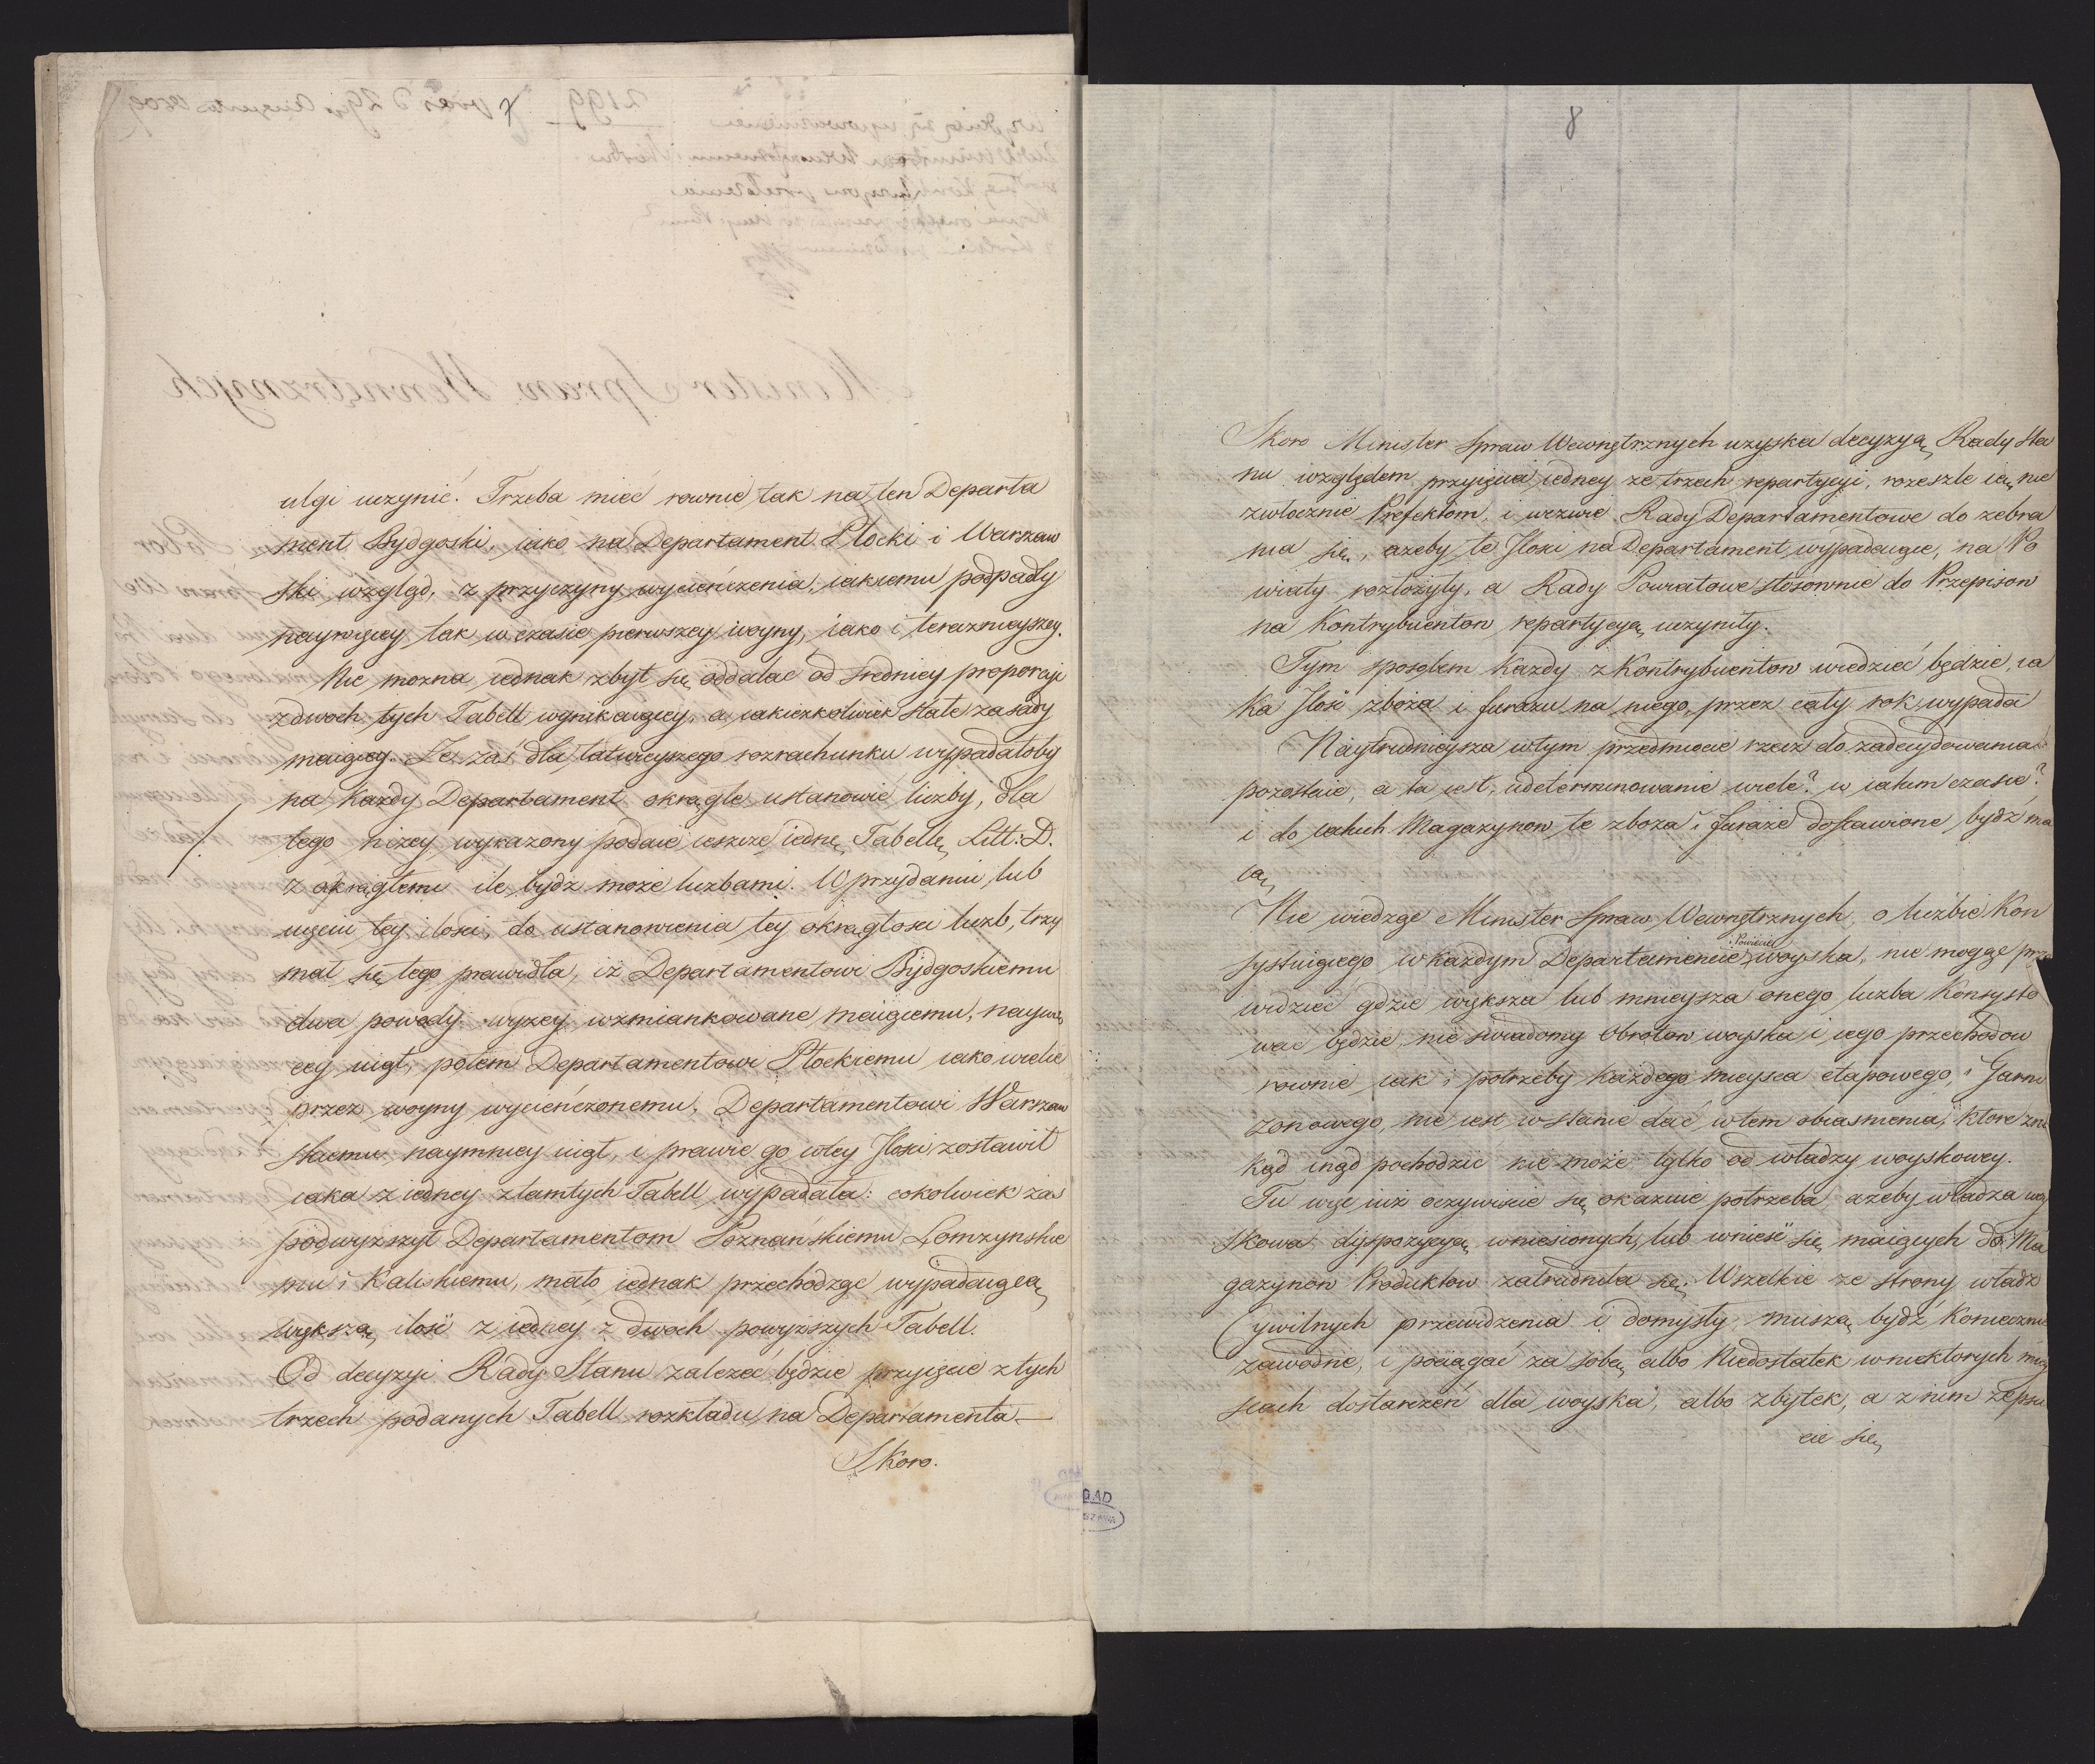 ulgi uczynić. Trzeba mieć rownie tak na ten Departa
ment Bydgoski, iako na Departament Płocki i Warszaw
ski wzgląd, z przyczyny wycieńczenia, iakiemu podpadły
naywięcey tak w czasie pierwszey woyny, iako i teraznieyszey.
Nie mozna iednak zbyt się oddalac od sredniey proporcyi
z dwoch tych Tabell wynikaiącey, a iakiezkolwiek stałe zasady
maiącey. Ze zaś dla łatwieyszego rozrachunku wypadałoby
na Kazdy Departament okrągłe ustanowić liczby, dla
tego nizey wyrazony podaie ieszcze iednę Tabellę Litt: D.
z okrągłemi ile bydz może liczbami. W przydaniu lub
ujęciu tey ilosci, do ustanowienia tey okrągłosci liczb, trzy
mał się tego prawidła, iż Departamentowi Bydgoskiemu
dwa powody wyzey wzmiankowane maiącemu, naywię
cey uiął, potem Departamentowi Płockiemu iako wiele
przez woyny wycieńczonemu, Departamentowi Warszaw
skiemu naymniey uiął, i prawie go w tey Ilosci zostawił
iaka z iedney z tamtych Tabell wypadała: cokolwiek zas
podwyzszył Departamentom Poznańskiemu Łomzynskie
mu i Kaliskiemu, mało iednak przechodząc wypadaiącą
większą ilość z iedney z dwoch powyższych Tabell.
Od decyzyi Rady Stanu zalezeć będzie przyięcie z tych
trzech podanych Tabell rozkładu na Departamenta —
Skoro.
8
Skoro Minister Spraw Wewnętrznych uzyska decyzyą Rady Sta
nu względem przyięcia iedney ze trzech repartycyi, rozeszle ią nie
zwłocznie Prefektom, i wezwie Rady Departamentowe do zebra
nia się, azeby te Ilosci na Departament wypadaiące, na Po
wiaty rozłożyły, a Rady Powiatowe stosownie do Przepisow
na Kontrybuentow repartycyą uczyniły.
Tym sposobem Kazdy z Kontrybuentow wiedzieć będzie, ia
ka Ilość zboża i furazu na niego przez cały rok wypada
Naytrudnieysza w tym przedmiocie rzecz do zadecydowania
pozostaie, a ta iest, udeterminowanie wiele? w iakim czasie?
i do iakich Magazynow te zboza i furaże dostawione bydź ma
ią
Nie wiedząc Minister Spraw Wewnętrznych, o liczbie Kon
systuiącego w każdym Departamencie i Powiecie woyska, nie mogąc prze
widzieć gdzie większa lub mnieysza onego liczba Konsysto
wać będzie, nie swiadomy Obrotow woyska i iego przechodow
rownie iak i potrzeby każdego mieysca etapowego, i Garni
zonowego, nie iest w stanie dać w tem obiasnienia, ktore zni
kąd inąd pochodzić nie może tylko od władzy woyskowey.
Tu więc iuż oczywiscie się okazuie potrzeba, azeby władza woy
skowa dyspozycyą wniesionych, lub wnieść się maiących do Ma
gazynow Produktow zatrudniła się. Wszelkie ze strony władz
Cywilnych przewidzenia i domysły muszą bydź Koniecznie
zawodne, i pociągać za sobą albo Niedostatek w niektorych miey
scach dostarczeń dla woyska, albo zbytek, a z nim zepsu
cie się